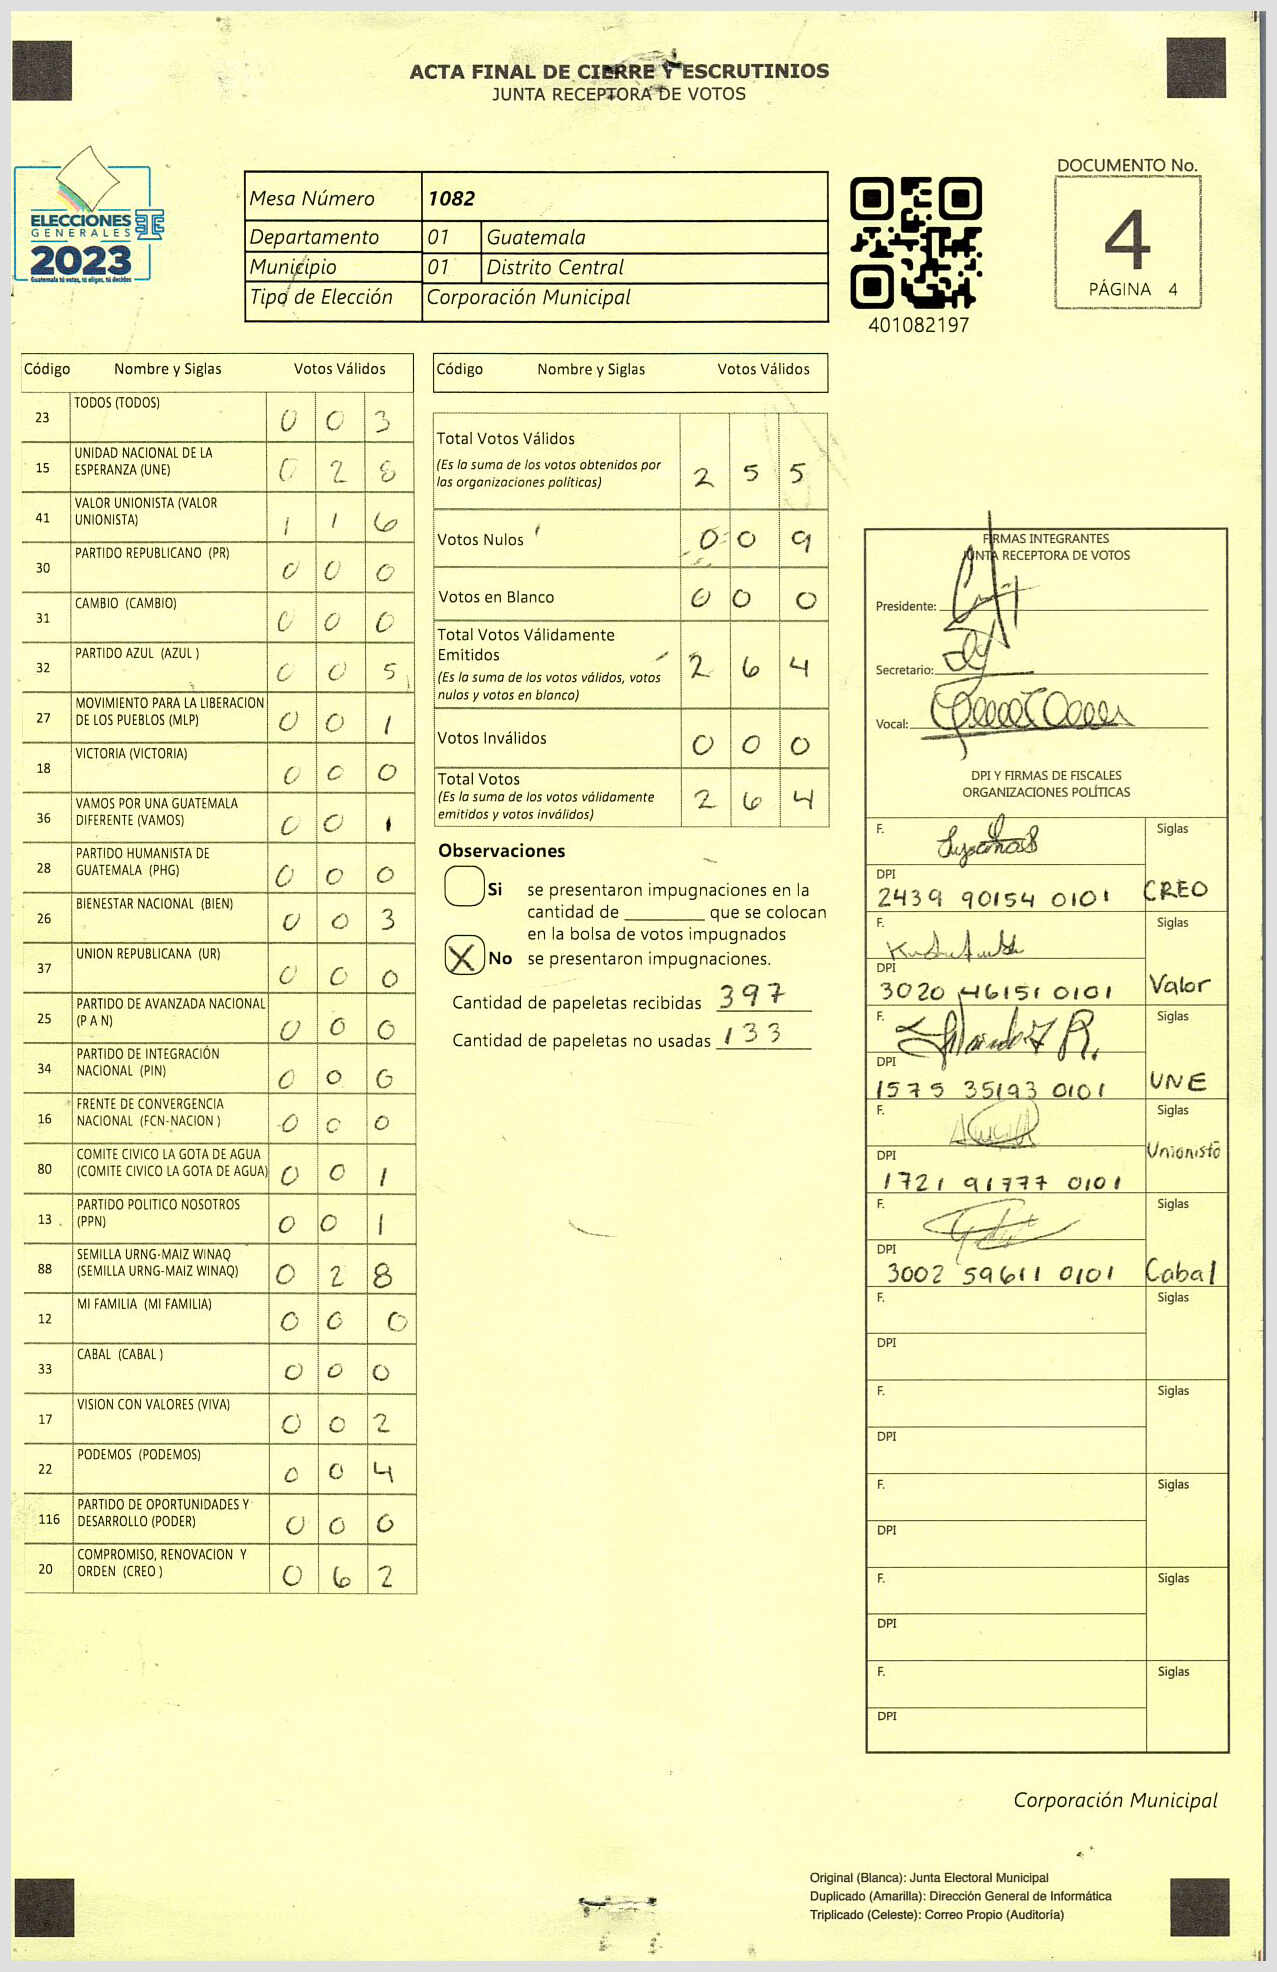 ACTA FINAL DE CIERRE Y ESCRUTINIOS
JUNTA RECEPTORA DE VOTOS
ELECCIONES
GENERALES
2023
Guatemala tú votas, tú eliges, tú decides
Mesa Número 1082
Departamento 01 Guatemala
Municipio 01 Distrito Central
Tipo de Elección Corporación Municipal
401082197
DOCUMENTO No.
4
PÁGINA 4
Código Nombre y Siglas Votos Válidos
23 TODOS (TODOS) 0 0 3
15 UNIDAD NACIONAL DE LA
ESPERANZA (UNE) 0 2 8
41 VALOR UNIONISTA (VALOR
UNIONISTA) 1 1 6
30 PARTIDO REPUBLICANO (PR) 0 0 0
31 CAMBIO (CAMBIO) 0 0 0
32 PARTIDO AZUL (AZUL ) 0 0 5
27 MOVIMIENTO PARA LA LIBERACION
DE LOS PUEBLOS (MLP) 0 0 1
18 VICTORIA (VICTORIA) 0 0 0
36 VAMOS POR UNA GUATEMALA
DIFERENTE (VAMOS) 0 0 1
28 PARTIDO HUMANISTA DE
GUATEMALA (PHG) 0 0 0
26 BIENESTAR NACIONAL (BIEN) 0 0 3
37 UNION REPUBLICANA (UR) 0 0 0
25 PARTIDO DE AVANZADA NACIONAL
(P A N) 0 0 0
34 PARTIDO DE INTEGRACIÓN
NACIONAL (PIN) 0 0 0
16 FRENTE DE CONVERGENCIA
NACIONAL (FCN-NACION ) 0 0 0
80 COMITE CIVICO LA GOTA DE AGUA
(COMITE CIVICO LA GOTA DE AGUA) 0 0 1
13 PARTIDO POLITICO NOSOTROS
(PPN) 0 0 1
88 SEMILLA URNG-MAIZ WINAQ
(SEMILLA URNG-MAIZ WINAQ) 0 2 8
12 MI FAMILIA (MI FAMILIA) 0 0 0
33 CABAL (CABAL ) 0 0 0
17 VISION CON VALORES (VIVA) 0 0 2
22 PODEMOS (PODEMOS) 0 0 4
116 PARTIDO DE OPORTUNIDADES Y
DESARROLLO (PODER) 0 0 0
20 COMPROMISO, RENOVACION Y
ORDEN (CREO ) 0 6 2
Código Nombre y Siglas Votos Válidos
Total Votos Válidos
(Es la suma de los votos obtenidos por
las organizaciones políticas) 2 5 5
Votos Nulos 0 0 9
Votos en Blanco 0 0 0
Total Votos Válidamente
Emitidos 2 6 4
(Es la suma de los votos válidos, votos
nulos y votos en blanco)
Votos Inválidos 0 0 0
Total Votos
(Es la suma de los votos válidamente
emitidos y votos inválidos) 2 6 4
Observaciones
Si se presentaron impugnaciones en la
cantidad de ________ que se colocan
en la bolsa de votos impugnados
X No se presentaron impugnaciones.
Cantidad de papeletas recibidas 397
Cantidad de papeletas no usadas 133
FIRMAS INTEGRANTES
JUNTA RECEPTORA DE VOTOS
Presidente:
Secretario:
Vocal:
DPI Y FIRMAS DE FISCALES
ORGANIZACIONES POLÍTICAS
F. Siglas
DPI
2439 90154 0101 CREO
F. Siglas
DPI
3020 46151 0101 Valor
F. Siglas
DPI
1575 35193 0101 UNE
F. Siglas
Unionista
DPI
1721 91777 0101
F. Siglas
DPI
3002 59611 0101 Cabal
F. Siglas
DPI
F. Siglas
DPI
F. Siglas
DPI
F. Siglas
DPI
F. Siglas
DPI
Corporación Municipal
Original (Blanca): Junta Electoral Municipal
Duplicado (Amarilla): Dirección General de Informática
Triplicado (Celeste): Correo Propio (Auditoría)